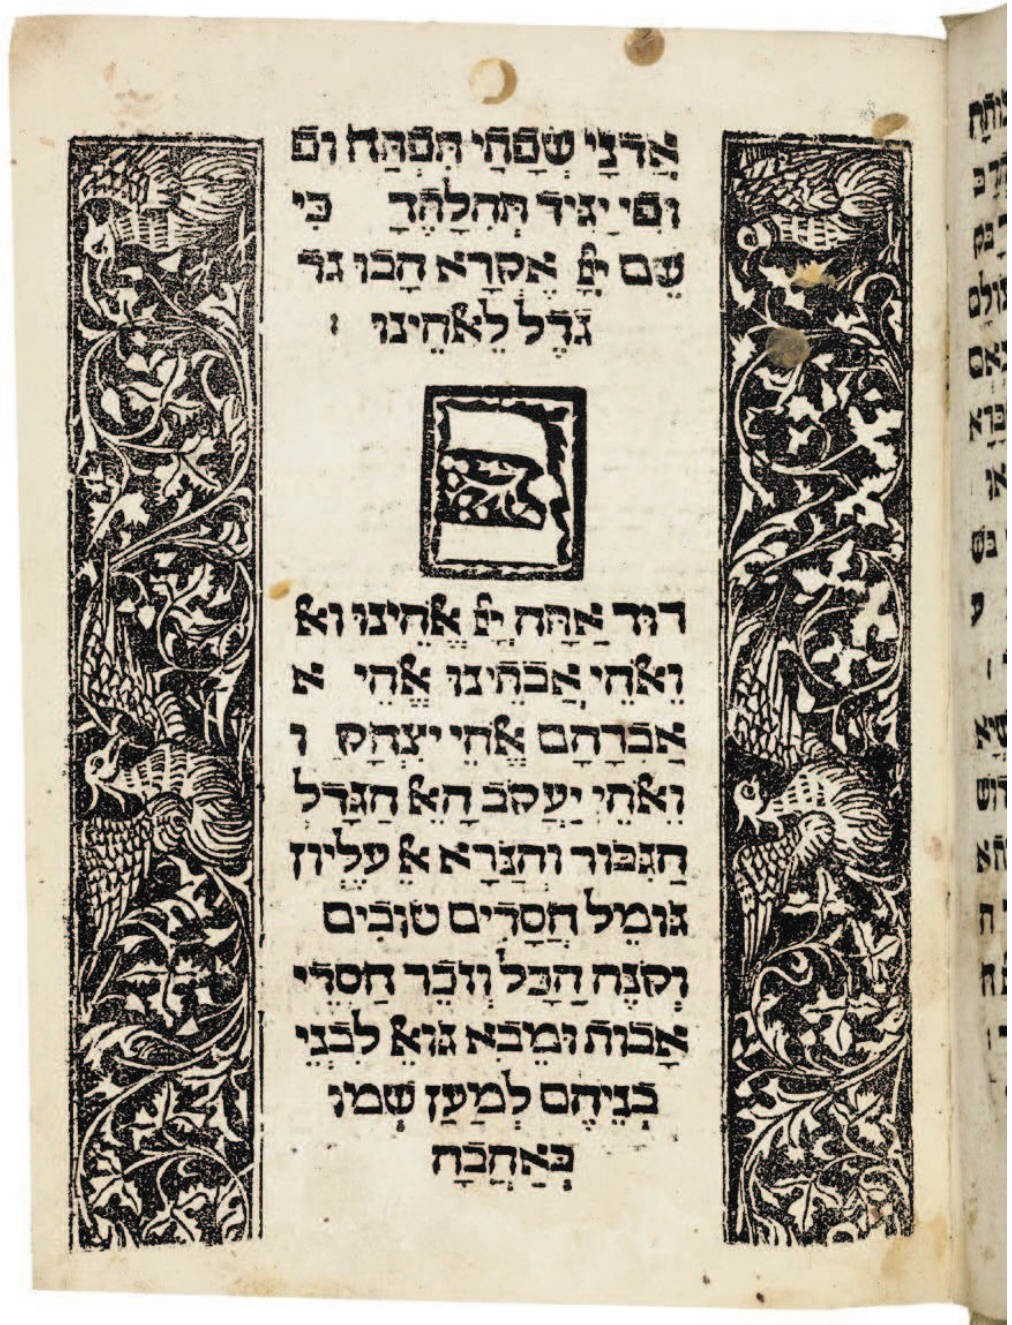 אֲדֹנָי שְׂפָתַי תִּפְתָּח וּפ
וּפִי יַגִּיד תְּהִלָּתֶךָ כִּי
שֵׁם יְיָ אֶקְרָא הָבוּ גד
גֹדֶל לֵאלֹהֵינוּ :
ב
רוּךְ אַתָּה יְיָ אֱלֹהֵינוּ וא
וֵאלֹהֵי אֲבֹתֵינוּ אֱלֹהֵי א
אַבְרָהָם אֱלֹהֵי יִצְחָק ו
וֵאלֹהֵי יַעֲקֹב הָאֵל הַגָּדֹל
הַגִּבּוֹר וְהַנֹּרָא אֵל עֶלְיוֹן
גּוֹמֵל חֲסָדִים טוֹבִים
וְקֹנֵה הַכֹּל וְזֹכֵר חַסְדֵי
אָבוֹת וּמֵבִא גוֹאֵל לִבְנֵי
בְנֵיהֶם לְמַעַן שְׁמוֹ
בְּאַהֲבָה